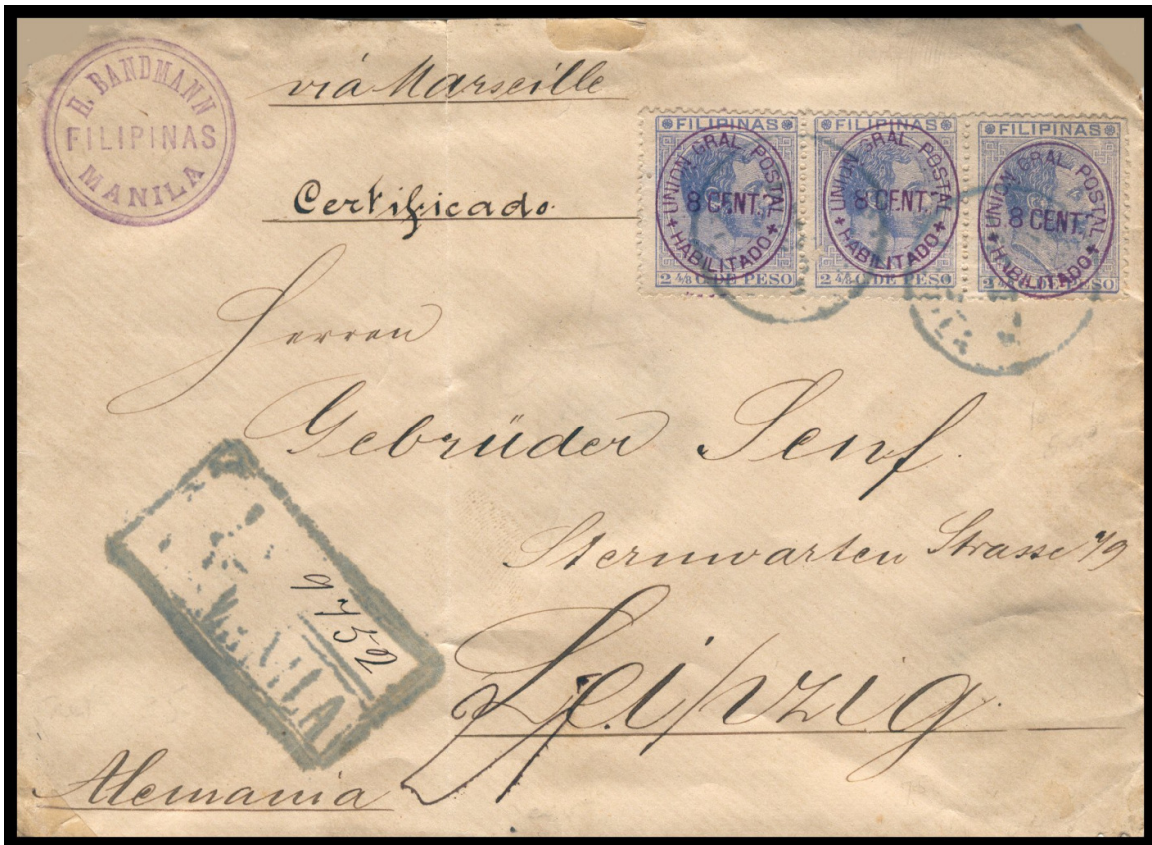 H. BANDMANN
FILIPINAS
MANILA
viá Marseille
Certificado
FILIPINAS
UNION GRAL. POSTAL
8 CENT.?
HABILITADO
2 4/8 C. DE PESO
FILIPINAS
UNION GRAL. POSTAL
8 CENT.?
HABILITADO
2 4/8 C. DE PESO
FILIPINAS
UNION GRAL. POSTAL
8 CENT.?
HABILITADO
2 4/8 C. DE PESO
Herren
Gebrüder Senf.
Sternwarten Strasse
9752
MANILA
Leipzig.
Alemania